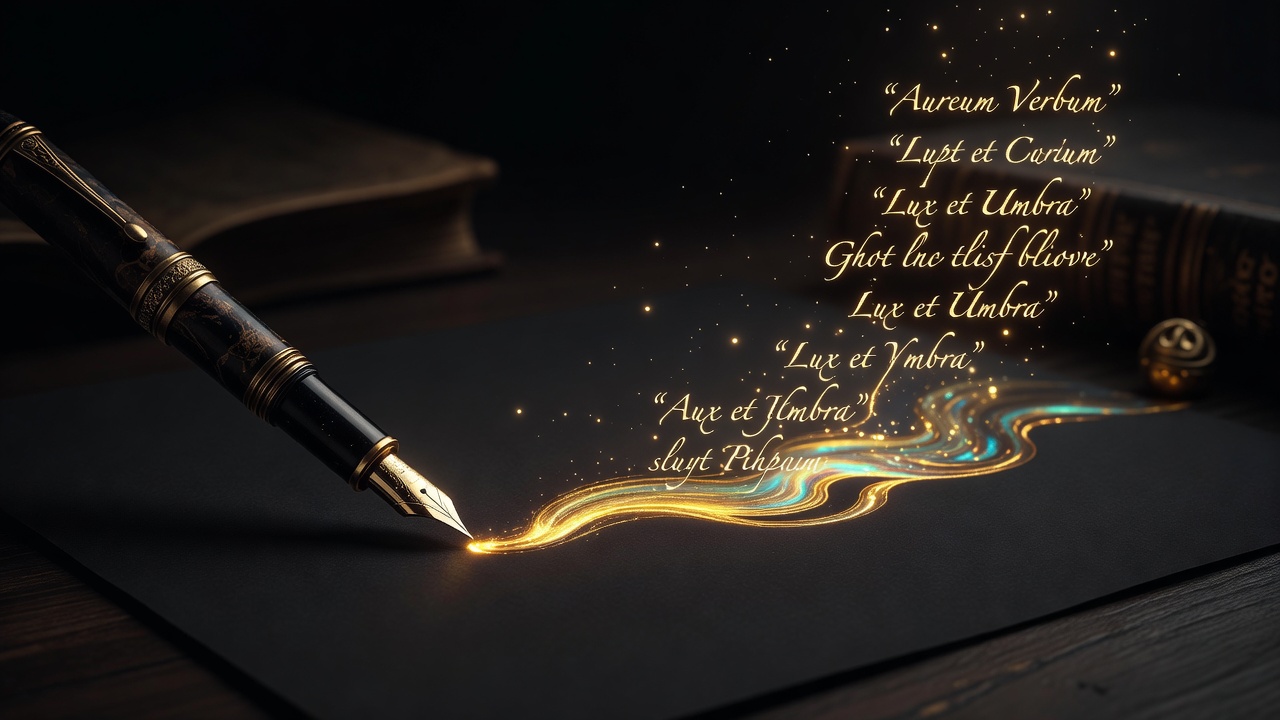 “Aureum Verbum”
“Lupt et Curium”
“Lux et Umbra”
Ghot lnc tlisf bliove”
Lux et Umbra”
“Lux et Ymbra”
“Aux et Jlmbra”
sluyt Pihpaum